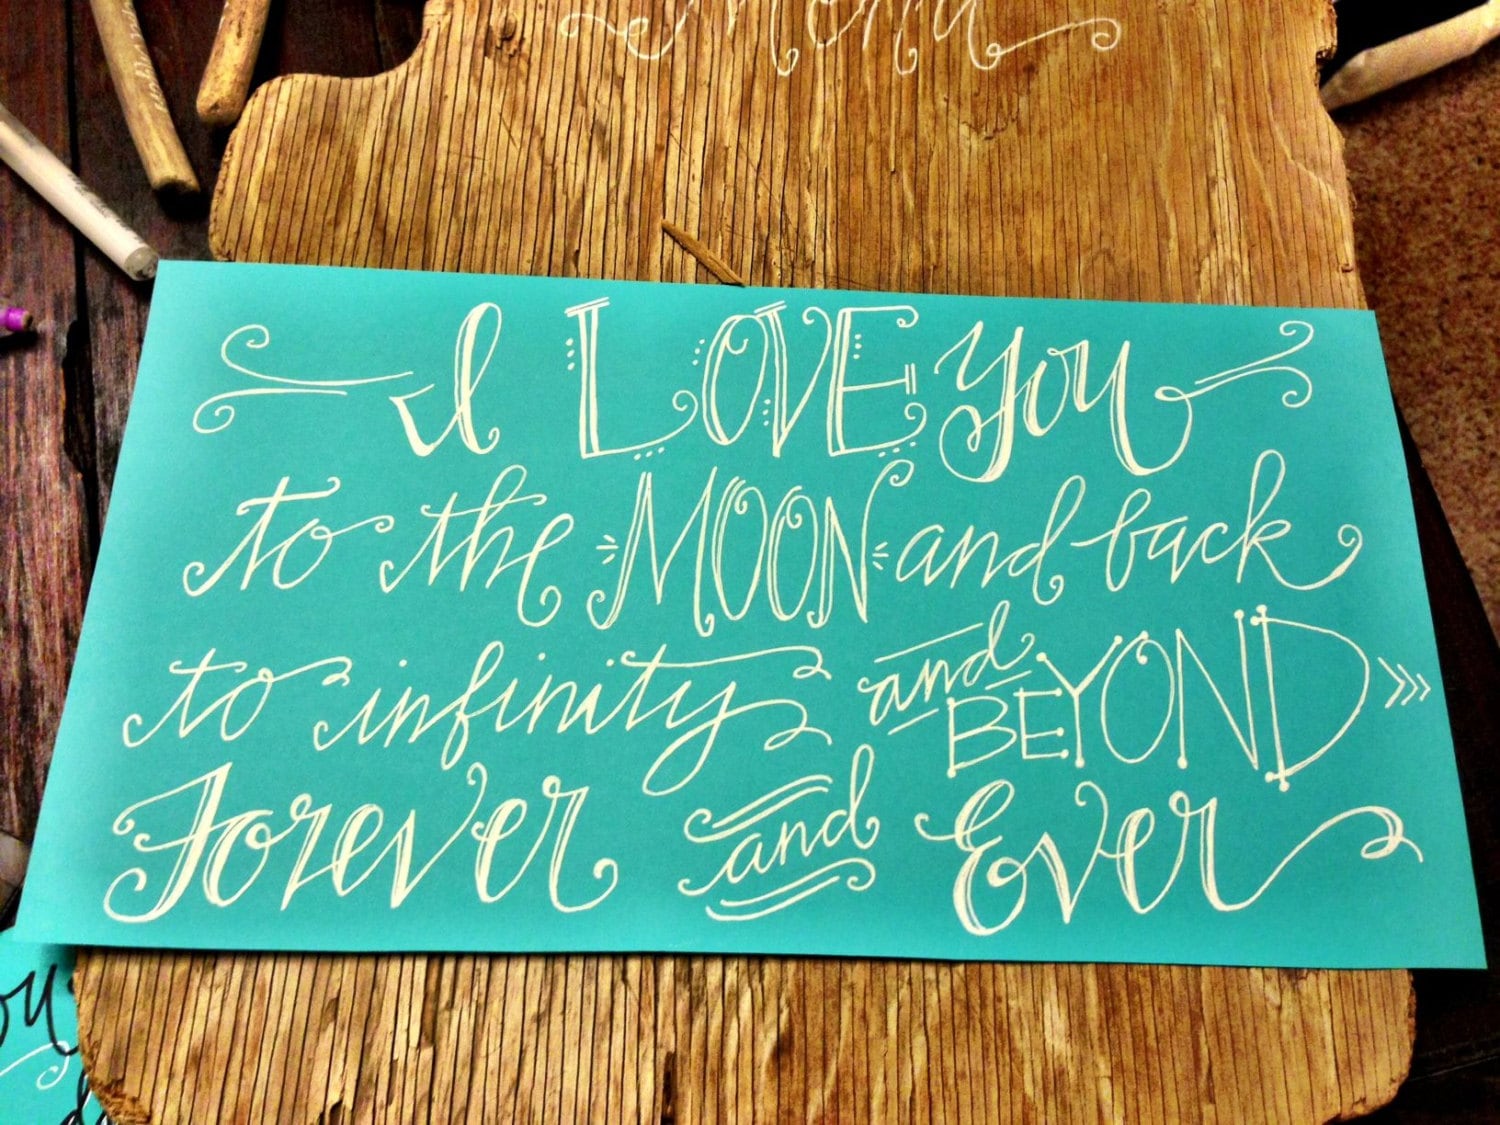 I LOVE you
to the MOON and back
to infinity and BEYOND >>>
Forever and Ever